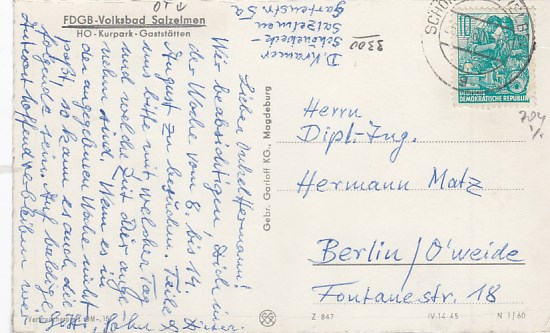 FDGB-Volksbad Salzelmen
HO - Kurpark - Gaststätten
D. Krämer
Schönebeck-
Salzelmen
Gartenstr. 5a
3300
Lieber Onkel Hermann!
Wir beabsichtigen, Dich in
der Woche vom 8. bis 14.
August zu besuchen. Teile
uns bitte mit welcher Tag
und welche Zeit Dir ange-
nehm sind. Wenn es in
der angegebenen Woche nicht
paßt, so kann es auch die
folgende sein. Auf baldige
Antwort hoffend verbleiben wir
Gebr. Garloff KG., Magdeburg
10
DEUTSCHE DEMOKRATISCHE REPUBLIK
Herrn
Dipl.-Ing.
Hermann Matz
Berlin/O'weide
Fontanestr. 18
Z 847
IV-14-45
N 1/60